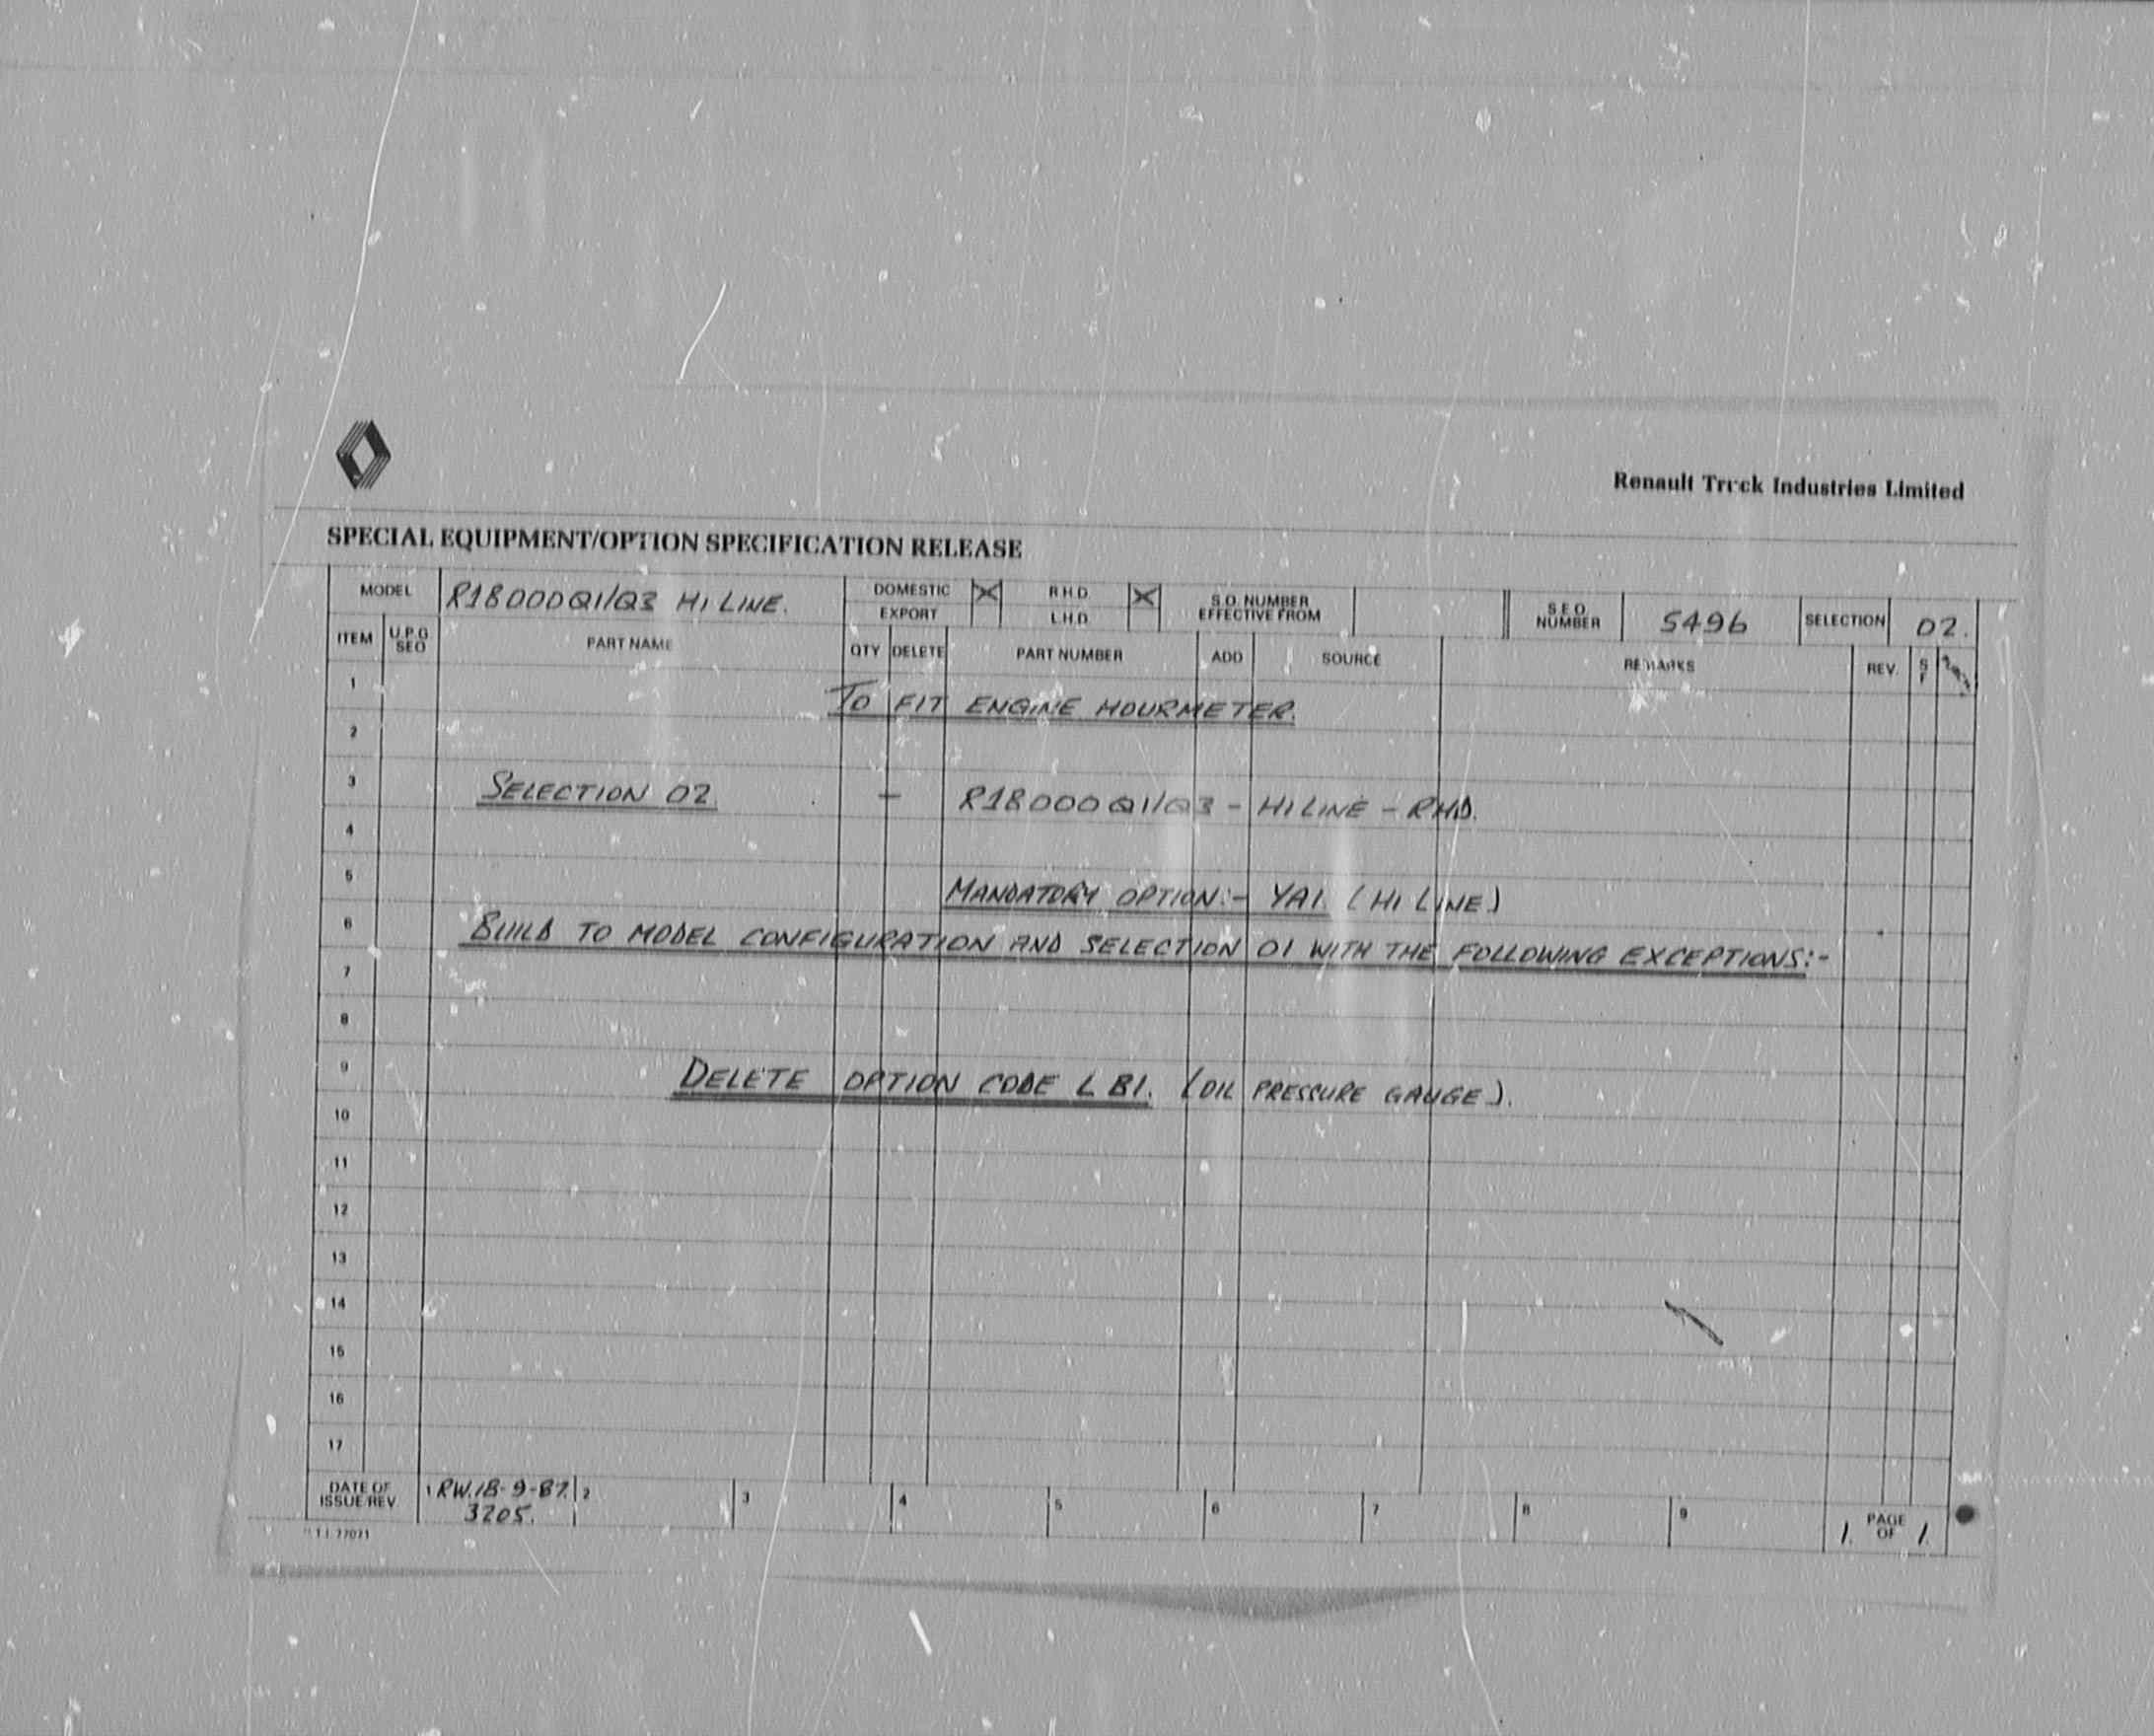 Renault Truck Industries Limited
SPECIAL EQUIPMENT/OPTION SPECIFICATION RELEASE
MODEL R18000Q1/Q3 HI LINE. DOMESTIC X R.H.D. X S.O. NUMBER EFFECTIVE FROM S.E.O. NUMBER 5496 SELECTION 02.
EXPORT L.H.D.
ITEM U.P.G. SEO PART NAME QTY DELETE PART NUMBER ADD SOURCE REMARKS REV.
1
TO FIT ENGINE HOURMETER.
2
3 SELECTION 02. - R18000Q1/Q3 - HI LINE - RHD.
4
5 MANDATORY OPTION:- YA1. (HI LINE)
6 BUILD TO MODEL CONFIGURATION AND SELECTION 01 WITH THE FOLLOWING EXCEPTIONS:-
7
8
9 DELETE OPTION CODE LB1. (OIL PRESSURE GAUGE).
10
11
12
13
14
15
16
17
DATE OF ISSUE/REV 1 RW.18-9-87. 2 3 4 5 6 7 8 9 1. PAGE OF 1.
3205.